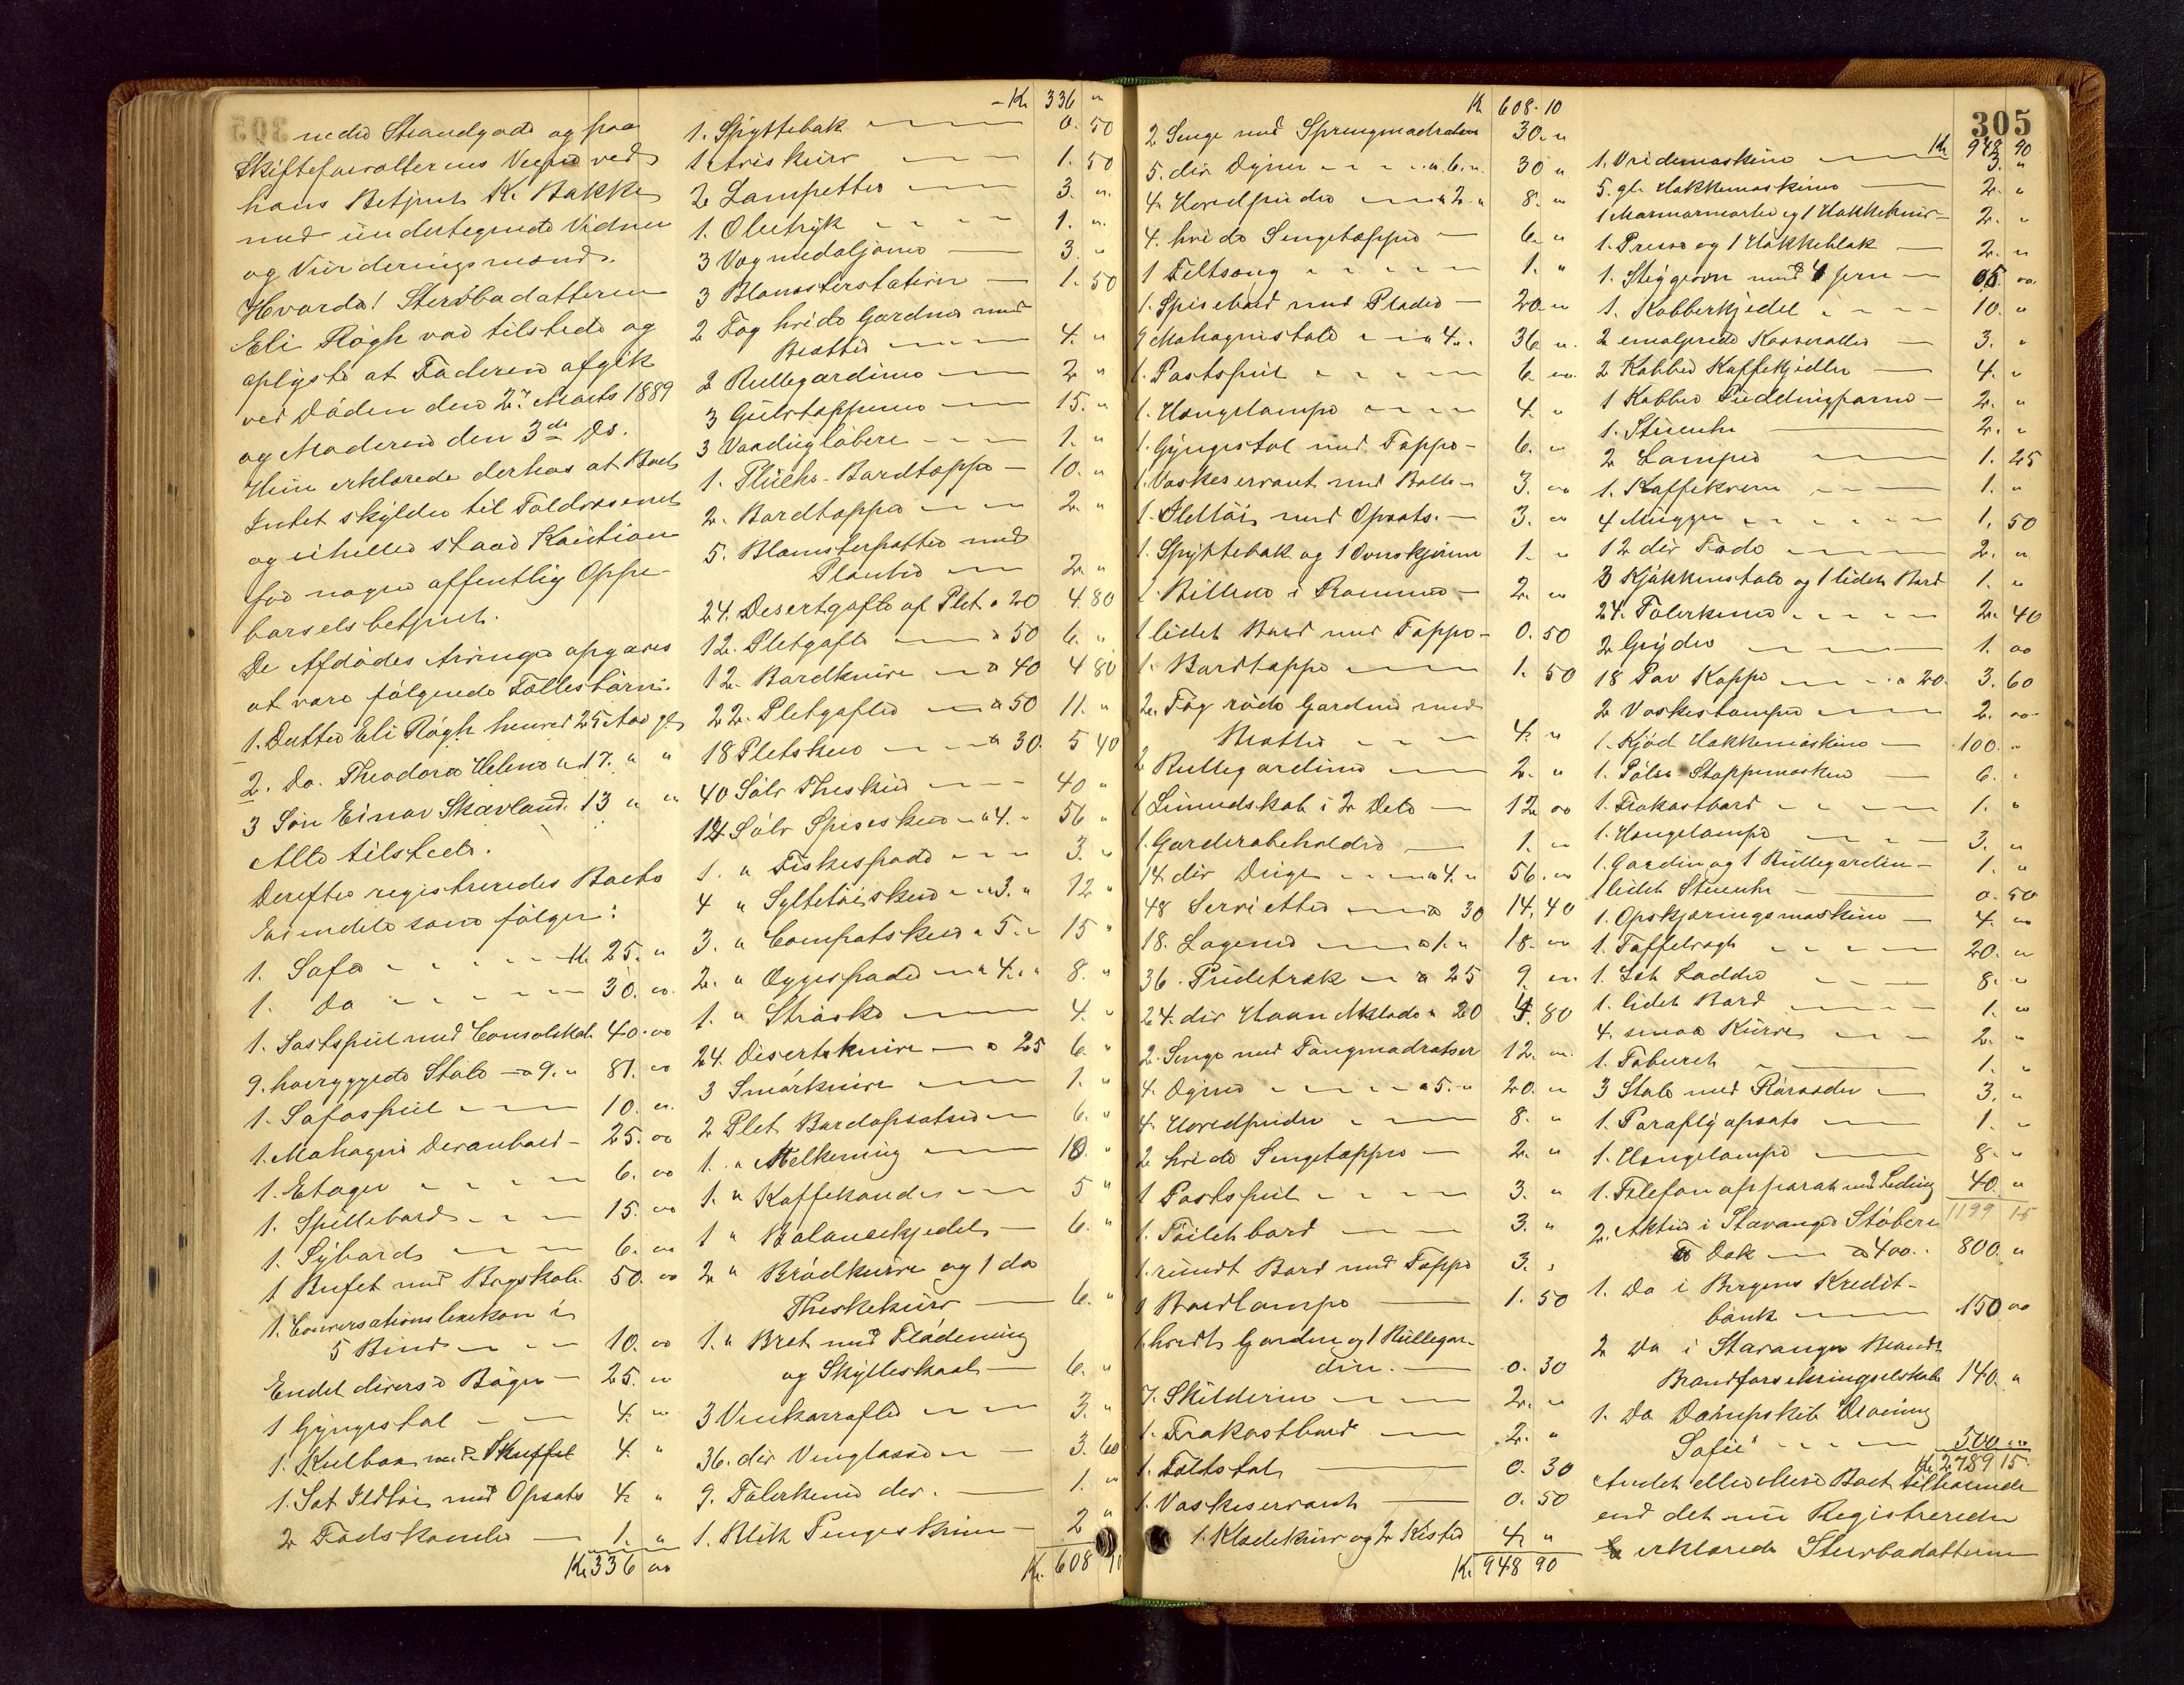 nedre Strandgade og paa
Skifteforvalterens Vegne ved
hans Betjent K. Bakke
med undertegnede Vidner
og Vurderingsmænd.
Hvorda! Sterbodatteren
Eli Røgh var tilstede og
oplyste at Faderen afgik
ved Døden den 2den Marts 1889
og Moderen den 3de Ds.
Hun erklærede derhos at Boet
Intet skylder til Toldvæsenet
og eiheller staar Kaution
for nogen offentlig Oppe-
børselsbetjent.
De Afdødes Arvinge opgaves
at være følgende Fællesbørn:
1. Datter Eli Røgh henved 25 Aar gl
2. Do. Theodora Helene " 17. " "
3 Søn Einar Skavland. 13 " "
Alle tilstede.
Derefter registreredes Boets
Eiendele som følger:
1. Sofa Kr. 25. "
1. Do 30. 00.
1. Sastspeil med Consolskab 40. 00
9. høiryggede Stole a 9. " 81. 00
1. Sofaspeil 10. "
1. Mahagni Divanbord 25. 00
1. Etager 6. 00
1. Spillebord 15. 00
1. Sybord 6. 00
1 Bufet med Bogskab 50. 00
1. Conversationslexikon i
5 Bind 10. 00
Endel diverse Bøger 25. "
1 Gyngestol 4. "
1. Kulbox med Skuffel 4. "
1. Sat Ildtøi med Opsats 4. "
2 Fodskamler 1. "
Kr 336 00
Kr 336 "
1. Spyttebak 0. 50
1 Aviskurv 1. 50
2 Lampetter 3. "
1. Olietryk 1. "
3 Vægmedaljoner 3. "
3 Blomsterstativer 1. 50
2 Fag hvide Gardiner med
Brætter 4. "
2 Rullegardiner 2 "
3 Gulvtepperne 15. "
3 Voxdugløbere 1. "
1. Pluchs-Bordteppe 10. "
2. Bordtepper 2. "
5. Blomsterpotter med
Planter 2. "
24. Desertgafle af Plet a 20 4. 80
12. Pletgafle a 50 6. "
12. Bordknive a 40 4 80
22. Pletgafler a 50 11. "
18 Pletskeer a 30. 5 40
40 Sølv Theskeer 40 "
14 Sølv Spiseskeer a 4. " 56 "
1. " Fiskespade 3. "
4 " Syltetøiskeer a 3. " 12 "
3. " Compotskeer a 5. " 15 "
2. " Æggespader a 4. " 8. "
1. " Strøske 4. "
24. Desertknive a 25 6. "
3 Smørknive 1. "
2 Plet Bordopsatser 6. "
1. " Melkemug 10. "
1. " Kaffekande 5 "
1 " Balancekjedel 6. "
2 " Brødkurve og 1 do
Theskekurv 6. "
1. " Bret med Flødemug
og Skylleskaal 6. "
3 Vinkarafler 3. "
36. div Vinglasse 3. 60
9. Talerkener div. 1. "
1. Blik Pengeskrin 2 "
Kr. 608 10
Kr 608. 10
2 Senge med Springmadratser 30. "
5. div Dyner a 6. " 30 "
4. Hovedpuder a 2. " 8. "
4. hvide Sengetepper 6. "
1 Feltseng 1. "
1. Spisebord med Plader 20. "
9 Mahognistole a 4. " 36 "
1. Postspeil 6. 00.
1. Hængelampe 4. "
1. Gyngestol med Teppe 6. "
1. Vaskeservant med Bolle 3. 00
1. Ildtøi med Opsats. 3. 00
1. Spyttebak og 1 Ovnskjerm 1. "
1. Billede i Ramme 2. 00
1 lidet Bord med Teppe 0. 50
1. Bordteppe 1. 50
2. Fag røde Gardiner med
Brætter 4. "
2 Rullegardiner 2. "
1 Linnedskab i 2 Dele 12 00
1. Garderobeholder 1. "
14. div Duge a 4. " 56. 00
48 Servietter a 30 14. 40
18. Lagener a 1. " 18. 00
36. Pudetræk a 25 9. "
24. div Haandklæder a 20 4. 80
2. Senge med Tangmadratser 12. 00.
4. Dyner a 5. " 20. "
4. Hovedpuder 8. "
2 hvide Sengetepper 2. "
1 Postspeil 3. "
1. Toiletbord 3. "
1. rundt Bord med Teppe 3. "
1 Bordlampe 1. 50
1. hvidt Gardin og 1 Rullegar-
din. 0. 30
7. Skilderier 2. "
1. Frokostbord 2. "
1. Feltstol 0. 30
1. Vaskeservant 0. 50
1. Klædekurv og 2 Kister 4. "
Kr 948 90
305
Kr 948 90
1. Vridemaskine 3. "
5. gl. Hakkemaskiner 2. "
1 Marmormorter og 1 Hakkekniv 2. "
1. Presse og 1 Hakkeblok 2. "
1. Strygeovn med 4 jern 05. 00.
1. Kobberkjedel 10. "
2 emaljerede Kasseroller 3. "
2 Kobber Kaffekjedler 4. "
1 Kobber Puddingform 2. "
1. Stueuhr 2. "
2 Lamper 1. 25
1. Kaffekvern 1. "
4 Mugger 1. 50
12 div Fade 2. "
3 Kjøkkenstole og 1 lidet Bord 1. "
24. Talerkener 2. 40
2 Gryder 1. 00
18 Par Kopper a 20. 3. 60
2 Vaskestamper 2. 00.
1. Kjød Hakkemaskine 100. "
1. Pølse Stoppemaskine 6. "
1. Frokostbord 1. "
1. Hængelampe 3. "
1. Gardin og 1 Rullegardin 1. "
1 lidet Stueuhr 0. 50
1. Opskjæringsmaskine 4. 00
1. Taffelvægt 20. "
1. Sæt Lodder 8. "
1. lidet Bord 1. 00
4. smaa Kurve 2. "
1. Taburet 1. "
3 Stole med Rørsæder 3. "
1. Paraplyopsats 1. "
1. Hængelampe 8. "
1. Telefonapparat med Ledning 40. "
1199 15
2. Aktier i Stavanger Støberi
& Dok a 400. " 800. "
1. Do i Bergens Kredit-
bank 150 00
2 Do i Stavanger Brands
Brandforsikringselskab 140. "
1. Do Dampskib Dronning
Sofie 500 00
Kr. 2789 15.
Andet eller Mere Boet tilhørende
end det nu Registrerede
erklærede Sterbodatteren